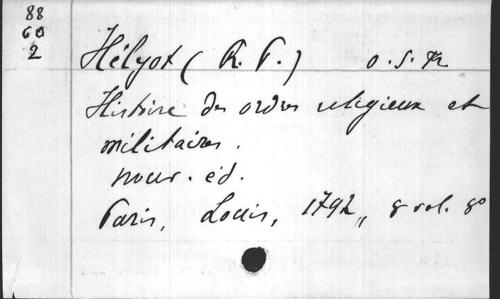 88
60
2
Hélyot (R. P.) o. S. Fr
Histoire des ordres religieux et
militaires.
nouv. éd.
Paris, Louis, 1792,, 8 vol. 8º